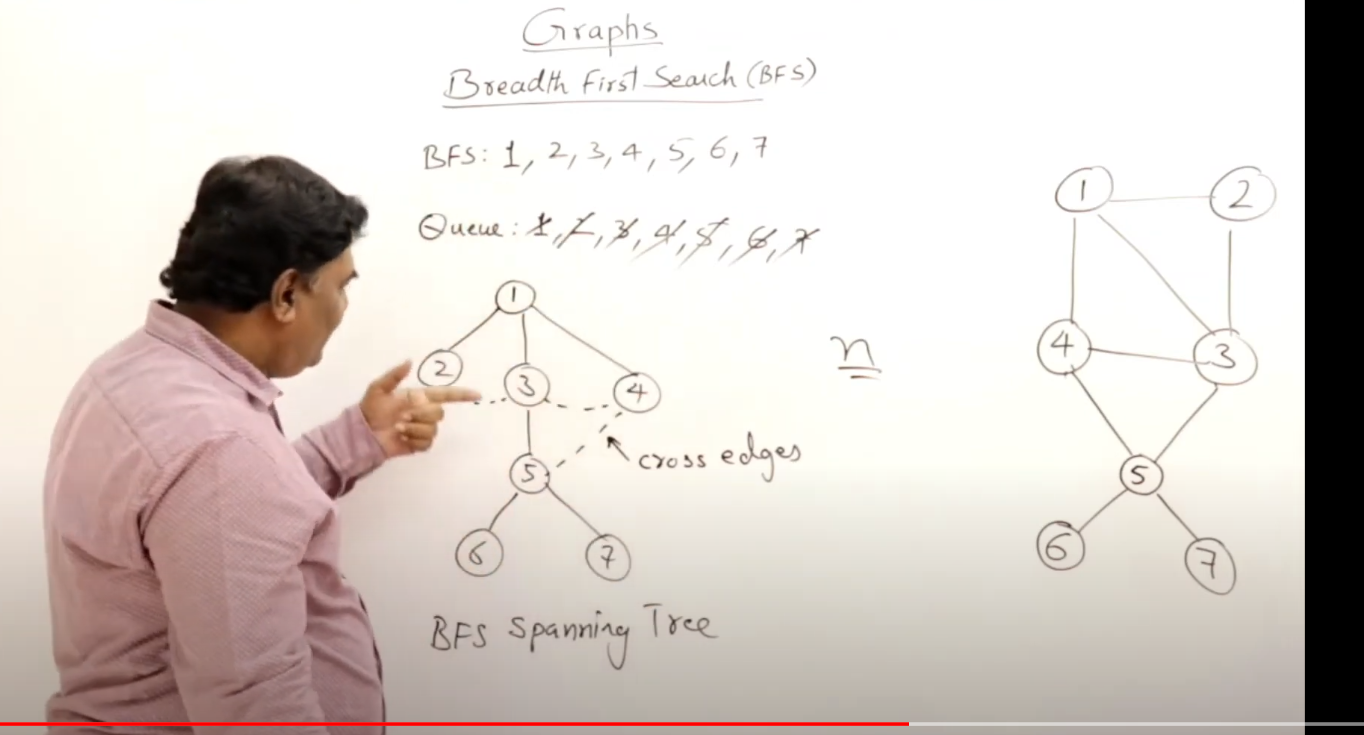 Graphs
Breadth First Search (BFS)
BFS: 1, 2, 3, 4, 5, 6, 7
Queue: 1, 2, 3, 4, 5, 6, 7
1
2
3
4
5
6
7
cross edges
BFS Spanning Tree
n
1
2
4
3
5
6
7